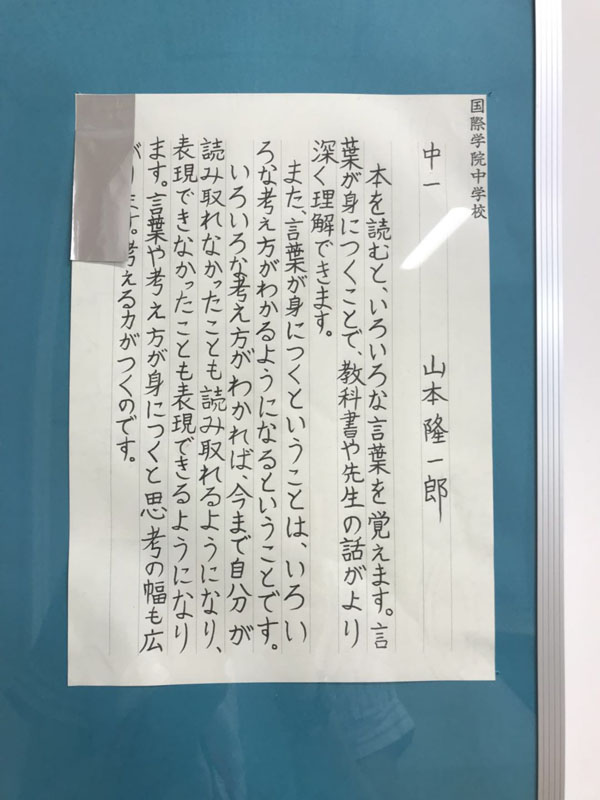 国際学院中学校
中一 山本隆一郎
本を読むと、いろいろな言葉を覚えます。言
葉が身につくことで、教科書や先生の話がより
深く理解できます。
また、言葉が身につくということは、いろい
ろな考え方がわかるようになるということです。
いろいろな考え方がわかれば、今まで自分が
読み取れなかったことも読み取れるようになり、
表現できなかったことも表現できるようになり
ます。言葉や考え方が身につくと思考の幅も広
がります。考える力がつくのです。